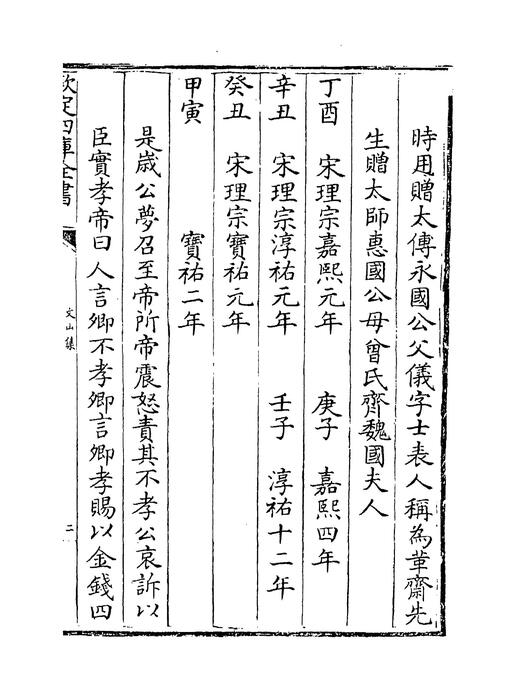 時用贈太傅永國公父儀字士表人稱為革齋先
生贈太師惠國公母曾氏齊魏國夫人
丁酉　宋理宗嘉熙元年　庚子　嘉熙四年
辛丑　宋理宗淳祐元年　壬子　淳祐十二年
癸丑　宋理宗寶祐元年
甲寅　寶祐二年
是歲公夢召至帝所帝震怒責其不孝公哀訴以
臣實孝帝曰人言卿不孝卿言卿孝賜以金錢四
欽定四庫全書
文山集
二